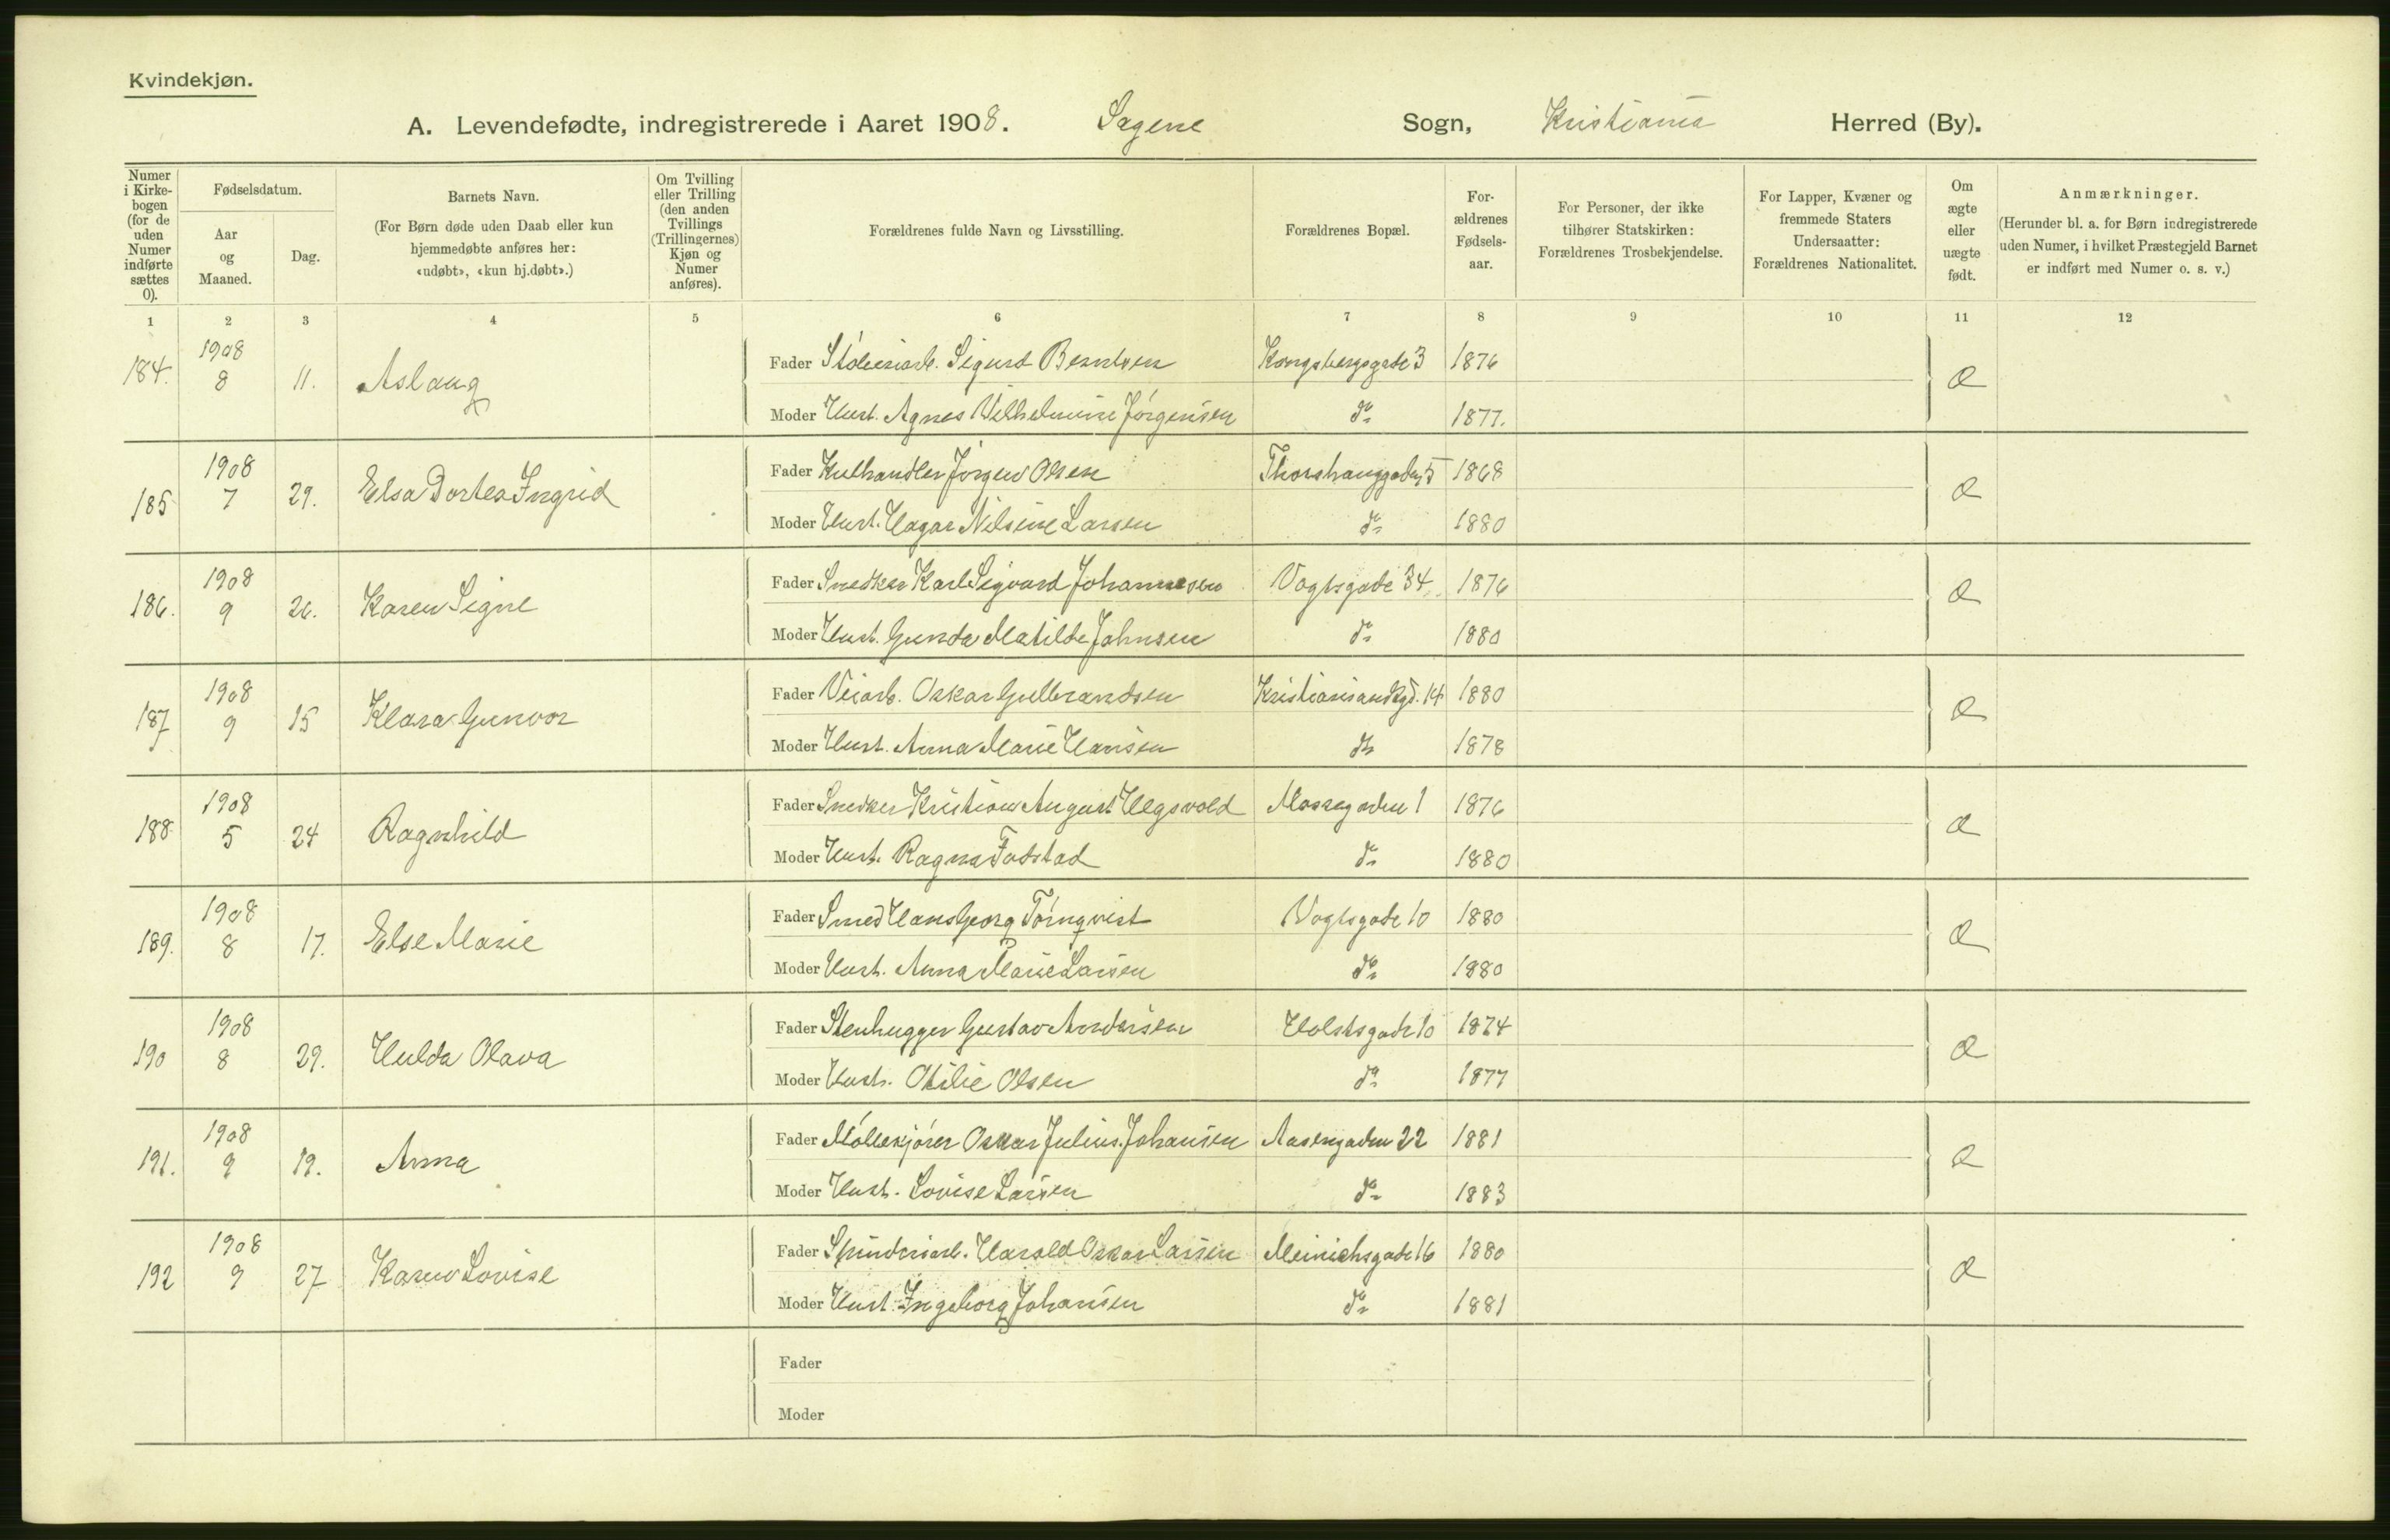 Kvindekjøn.
A. Levendefødte, indregistrerede i Aaret 1908. Sagene Sogn, Kristiania Herred (By).
Numer i Kirkebogen (for de uden Numer indførte sættes 0).
Fødselsdatum.
Aar og Maaned.
Dag.
Barnets Navn.
(For Børn døde uden Daab eller kun hjemmedøbte anføres her: «udøbt», «kun hj.døbt».)
Om Tvilling eller Trilling (den anden Tvillings (Trillingernes) Kjøn og Numer anføres).
Forældrenes fulde Navn og Livsstilling.
Forældrenes Bopæl.
Forældrenes Fødselsaar.
For Personer, der ikke tilhører Statskirken: Forældrenes Trosbekjendelse.
For Lapper, Kvæner og fremmede Staters Undersaatter: Forældrenes Nationalitet.
Om ægte eller uægte født.
Anmærkninger.
(Herunder bl. a. for Børn indregistrerede uden Numer, i hvilket Præstegjeld Barnet er indført med Numer o. s. v.)
1 2 3 4 5 6 7 8 9 10 11 12
184. 1908 8 11. Aslaug
Fader Støberiarb. Sigurd Berntsen Kongsbergsgade 3 1876 Æ
Moder Hust. Agnes Wilhelmine Jørgensen do 1877.
185 1908 7 29. Elsa Dortea Ingrid
Fader Kulhandler Jørgen Olsen Thorshauggaden 5 1868 Æ
Moder Hust. Hagar Nilsine Larsen do 1880
186. 1908 9 26. Karen Signe
Fader Snedker Karl Sigvard Johannesen Vogtsgade 34 1876 Æ
Moder Hust. Gunda Matilde Johnsen do 1880
187 1908 9 15 Klara Gunvor
Fader Veiarb. Oskar Gulbrandsen Kristiansandsgd. 14 1880 Æ
Moder Hust. Anna Marie Hansen do 1878
188 1908 5 24 Ragnhild
Fader Snedker Kristian August Hegsvold Mossegaden 1 1876 Æ
Moder Hust. Ragna Fodstad do 1880
189. 1908 8 17. Else Marie
Fader Smed Hans Georg Törnqvist Vogtsgade 10 1880 Æ
Moder Hust. Anna Marie Larsen do 1880
190 1908 8 29. Hulda Olava
Fader Stenhugger Gustav Andersen Holstsgade 10 1874 Æ
Moder Hust. Otilie Olsen do 1877
191. 1908 9 19. Anna
Fader Møllekjører Oskar Julius Johansen Aasengaden 22 1881 Æ
Moder Hust. Lovise Larsen do 1883
192 1908 9 27 Karen Lovise
Fader Spinderiarb. Harald Oskar Larsen Meinichsgade 16 1880 Æ
Moder Hust. Ingeborg Johansen do 1881
Fader
Moder